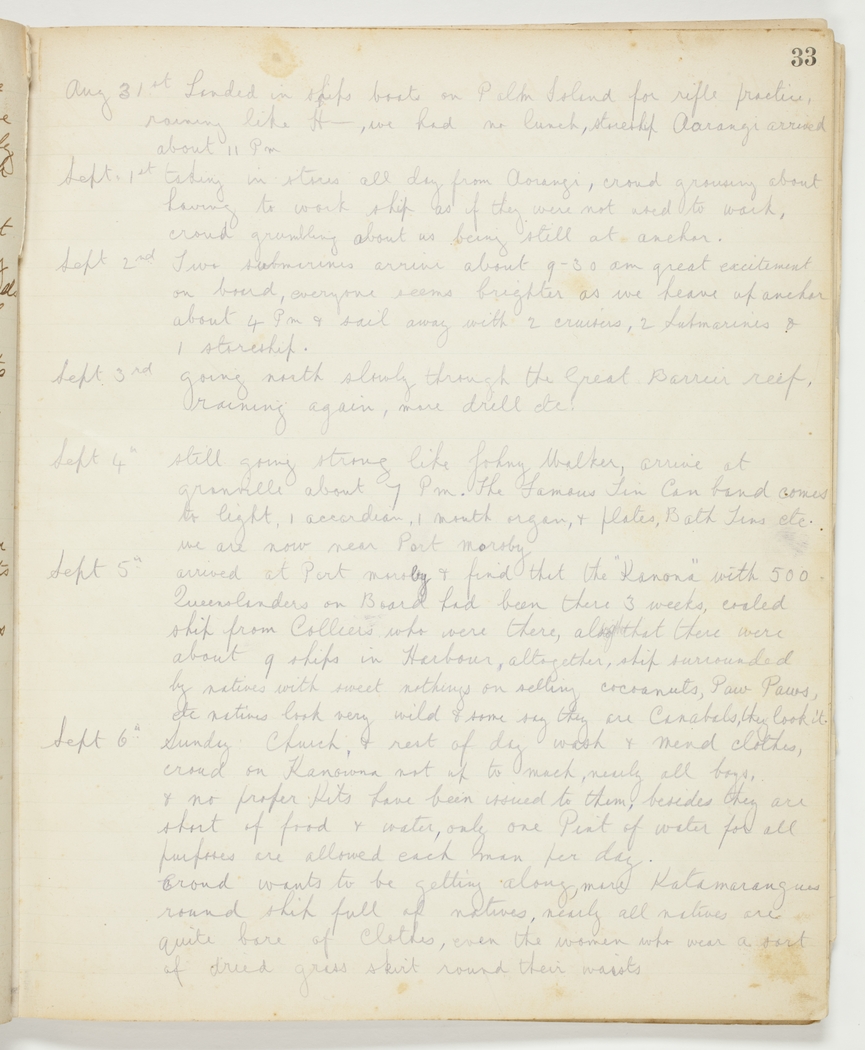 33
Aug 31st Landed in ships boats on Palm Island for rifle practice,
raining like H—, we had no lunch, storeship Aorangi arrived
about 11 Pm
Sept. 1st taking in stores all day from Aorangi, croud grousing about
having to work ship as if they were not used to work,
croud grumbling about us being still at anchor.
Sept 2nd Two submarines arrive about 9-30 am great excitement
on board, everyone seems brighter as we heave up anchor
about 4 Pm & sail away with 2 cruisers, 2 submarines &
1 storeship.
Sept 3rd going north slowly through the Great Barrier reef,
raining again, more drill etc.
Sept 4th still going strong like Johny Walker, arrive at
granville about 7 Pm. The Famous Tin Can band comes
to light, 1 accordian, 1 mouth organ, & plates, Bath Tins etc.
we are now near Port moresby
Sept 5th arrived at Port moresby & find that the "Kanona" with 500
Queenslanders on Board had been there 3 weeks, coaled
ship from Colliers who were there, that there were
about 9 ships in Harbour, altogether, ship surrounded
by natives with sweet nothings on selling cocoanuts, Paw Paws,
etc natives look very wild & some say they are Canabals, they look it.
Sept 6th Sunday. Church, & rest of day wash & mend clothes,
croud on Kanowna not up to much, nearly all boys,
& no proper Kits have been issued to them, besides they are
short of food & water, only one Pint of water for all
purposes are allowed each man per day.
Croud wants to be getting along, more Katamarangues
round ship full of natives, nearly all natives are
quite bare of Clothes, even the women who wear a sort
of dried grass skirt round their waists